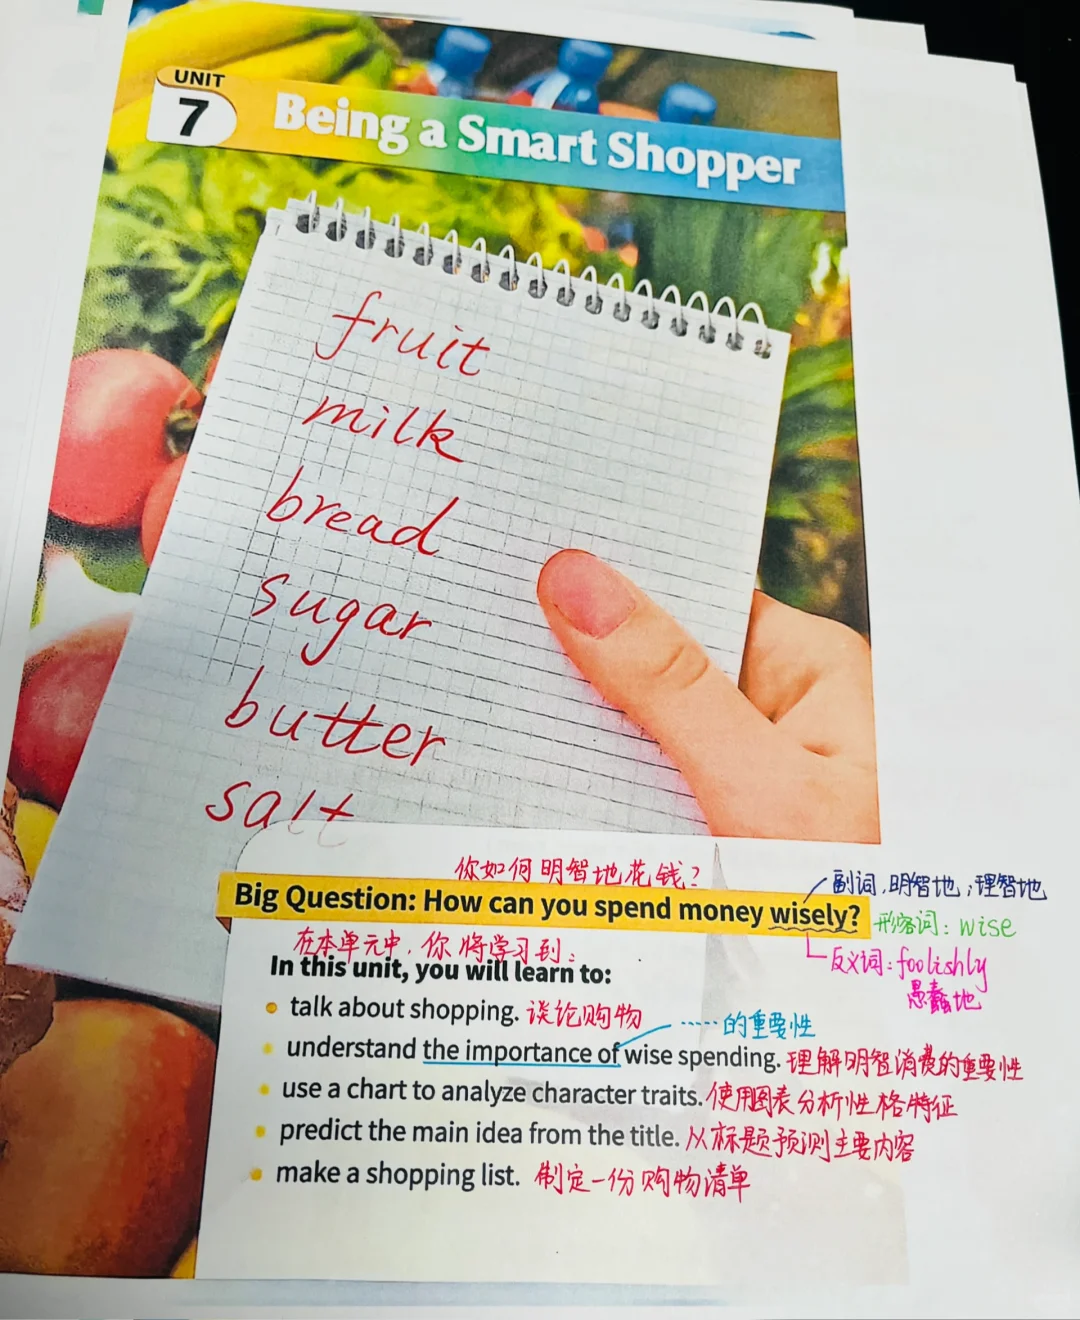 UNIT
7
Being a Smart Shopper
fruit
milk
bread
sugar
butter
salt
你如何明智地花钱？
副词，明智地；理智地
Big Question: How can you spend money wisely?
形容词：wise
反义词：foolishly
愚蠢地
在本单元中，你将学习到：
In this unit, you will learn to:
talk about shopping. 谈论购物
……的重要性
understand the importance of wise spending. 理解明智消费的重要性
use a chart to analyze character traits. 使用图表分析性格特征
predict the main idea from the title. 从标题预测主要内容
make a shopping list. 制定一份购物清单